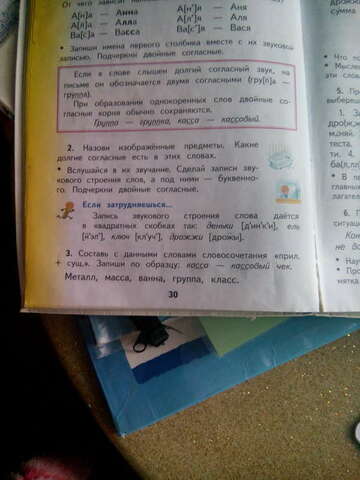 От чего зависит
А[н]а — Анна А[н']а — Аня
А[л]а — Алла А[л']а — Аля
Ва[с]а — Васса Ва[с']а — Вася
• Запиши имена первого столбика вместе с их звуковой
записью. Подчеркни двойные согласные.
Если в слове слышен долгий согласный звук, на
письме он обозначается двумя согласными (гру[п]а —
группа).
При образовании однокоренных слов двойные со-
гласные корня обычно сохраняются.
Группа — группка, касса — кассовый.
2. Назови изображённые предметы. Какие
долгие согласные есть в этих словах.
• Вслушайся в их звучание. Сделай записи зву-
кового строения слов, а под ними — буквенно-
го. Подчеркни двойные согласные.
Если затрудняешься...
Запись звукового строения слова даётся
в квадратных скобках так: деньки [д'ин'к'и], ель
[й'эл'], ключ [кл'уч'], дрожжи [дрожы].
3. Составь с данными словами словосочетания «прил.
+ сущ.». Запиши по образцу: касса — кассовый чек.
Металл, масса, ванна, группа, класс.
30
сумма
• Что по
• Мысле
эти слов
5. Пр
1. За
дро(ж,
м(н,
теста.
ти. 4.
ба(л,лл
• В пе
главным
лагател
6.
ситуаци
Кон
не до
• Нау
• Пр
мятка